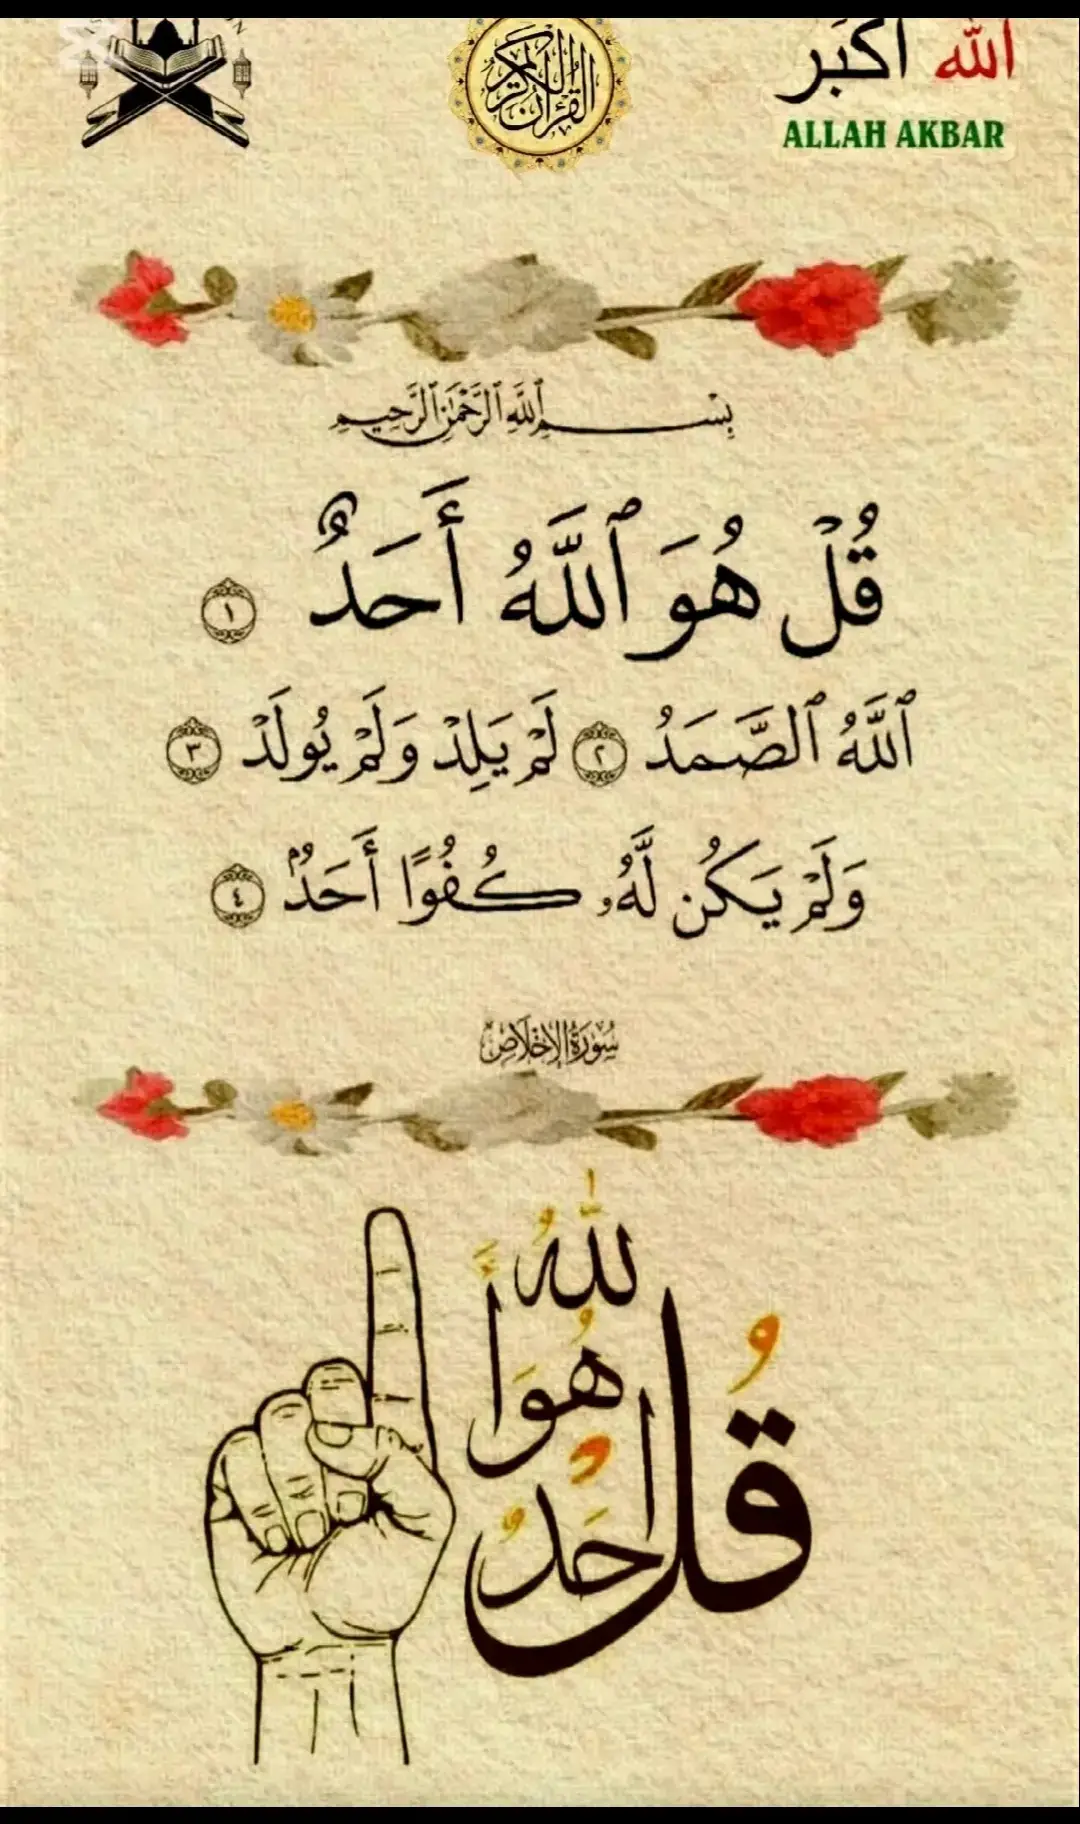 الله أكبر
ALLAH AKBAR
القرآن الكريم
بِسْمِ ٱللَّهِ ٱلرَّحْمَٰنِ ٱلرَّحِيمِ
قُلْ هُوَ ٱللَّهُ أَحَدٌ ١
ٱللَّهُ ٱلصَّمَدُ ٢ لَمْ يَلِدْ وَلَمْ يُولَدْ ٣
وَلَمْ يَكُن لَّهُۥ كُفُوًا أَحَدٌۢ ٤
سُورَةُ الإِخْلَاص
قُلْ هُوَ اللهُ أَحَدٌ